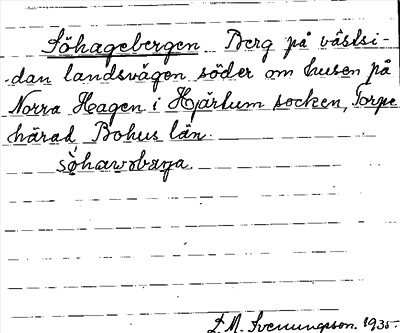 Söhagebergen Berg på västsi-
dan landsvägen söder om husen på
Norra Hagen i Hjärtum socken, Torpe
härad Bohus län.
D. M. Svenungsson. 1935.